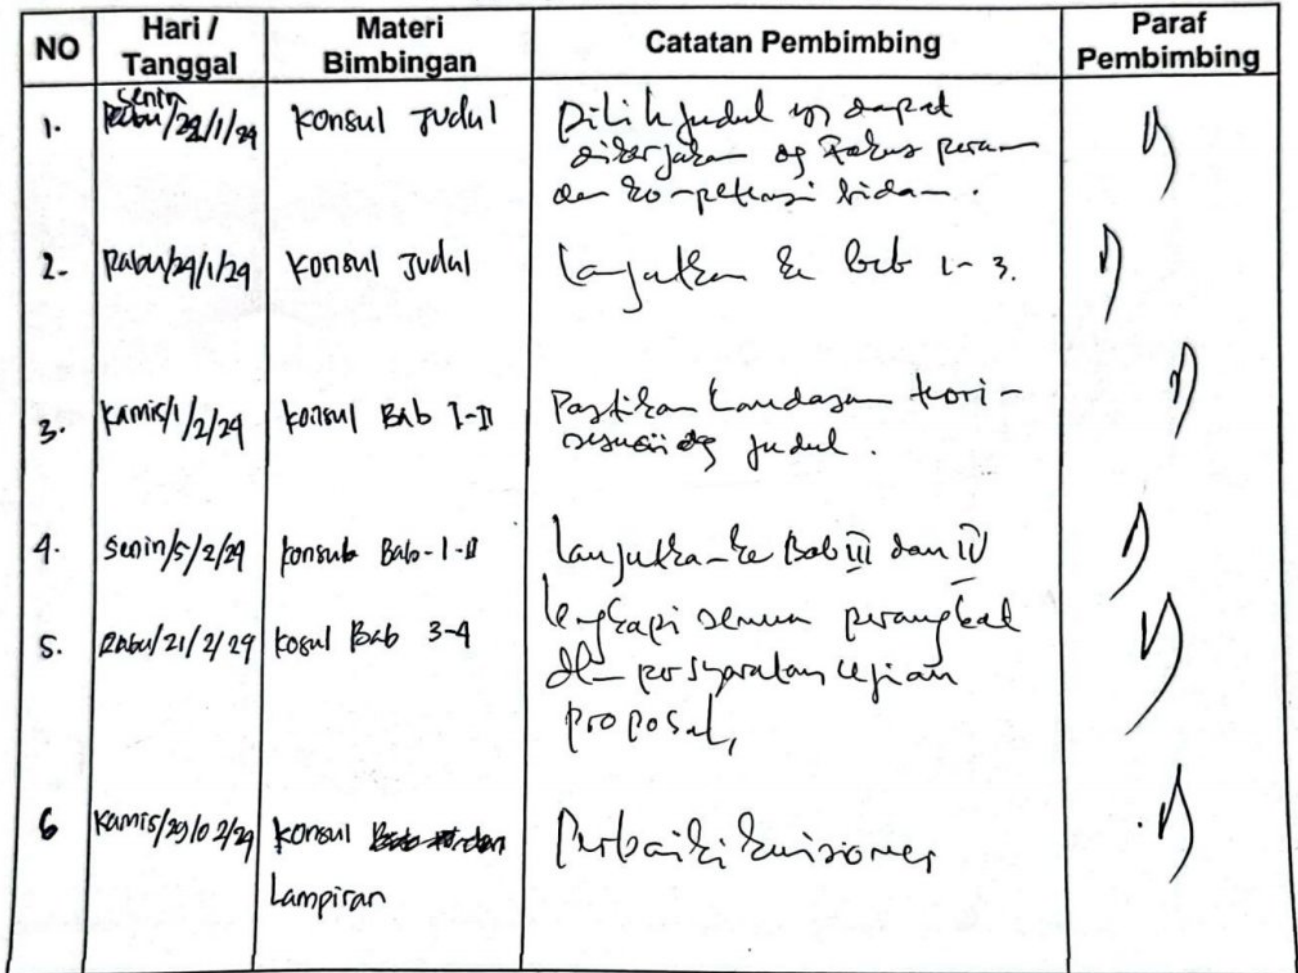 NO
Hari /
Tanggal
Materi
Bimbingan
Catatan Pembimbing
Paraf
Pembimbing
1.
Senin
/1/24
Konsul Judul
Pilih judul yg dapat
dikerjakan dg Fokus peran
dan kompetensi bidan.
2.
Rabu/24/1/24
Konsul Judul
Lanjutkan ke bab 1-3.
3.
Kamis/1/2/24
Konsul Bab I-II
Pastikan Landasan teori
sesuai dg judul.
4.
Senin/5/2/24
Konsul Bab-I-II
Lanjutkan ke Bab III dan IV
5.
Rabu/21/2/24
Kosul Bab 3-4
lengkapi semua perangkat
dlm persyaratan ujian
proposal,
6
Kamis/29/02/24
Konsul
Lampiran
Perbaiki kuisioner